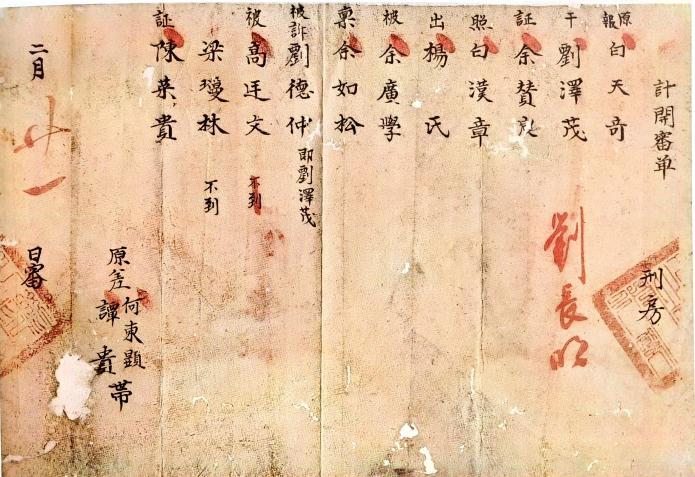 計開審单
刑房
劉長明
原報 白天奇
干 劉澤茂
証 余賛
照 白漢章
出 楊氏
被 余廣學
稟 余如松
被訴 劉德仲 即劉澤茂
被 高廷文 不到
梁瓊林 不到
証 陳英貴
原差 何東顕
譚貴
帶
二月廿一日審